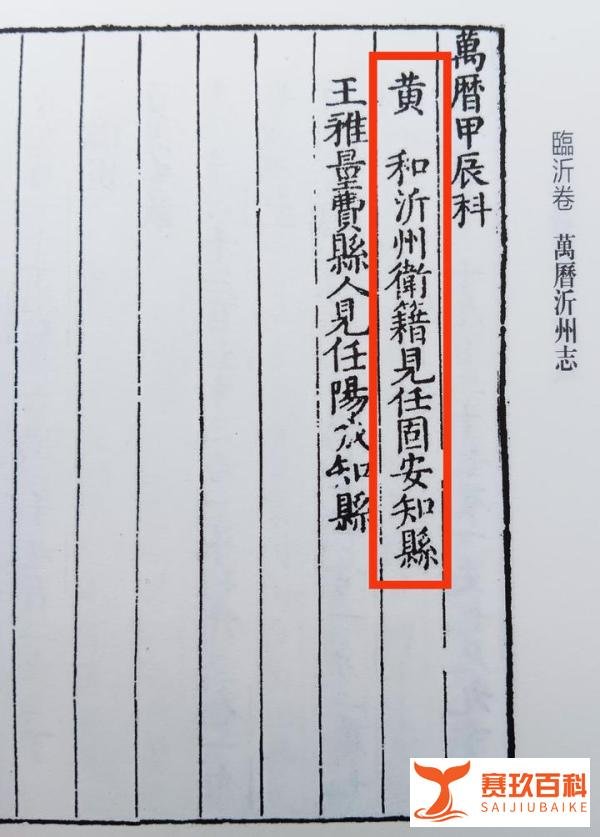 臨沂卷 萬曆沂州志
萬曆甲辰科
黄 和沂州衛籍見任固安知縣
王雅量費縣人見任陽城知縣
赛玖百科
SAIJIUBAIKE